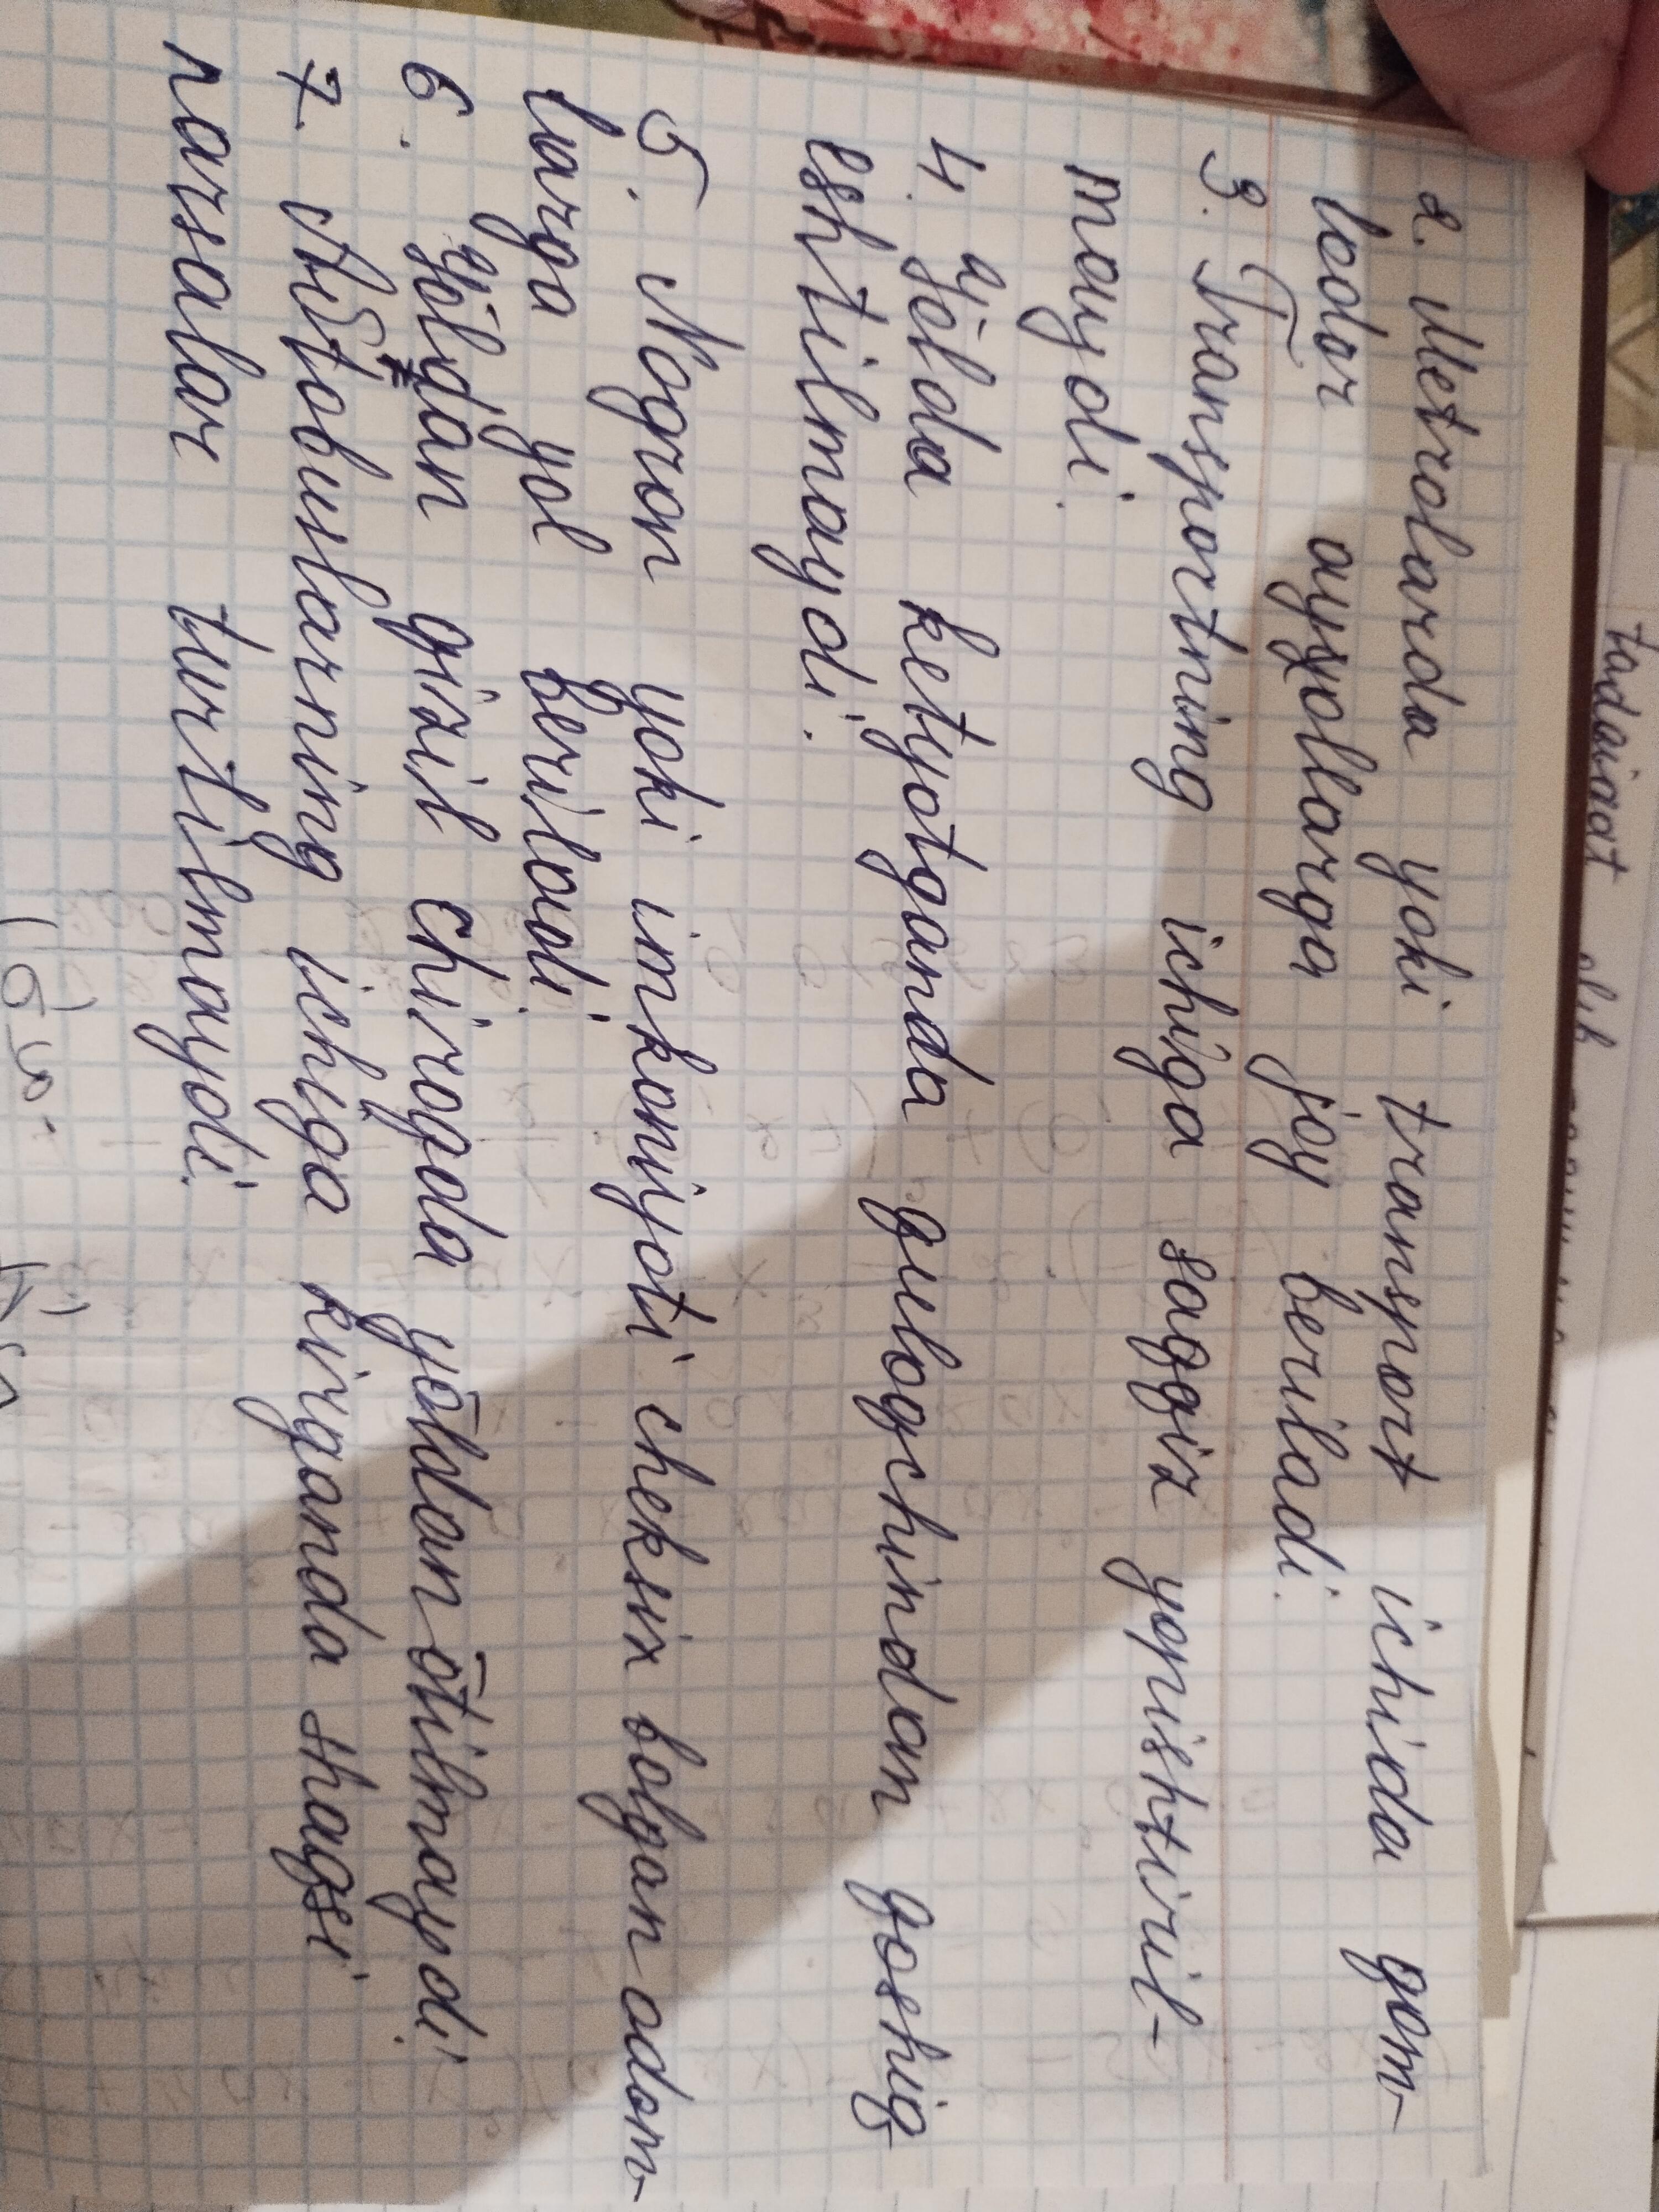 2. Metrolarda yoki transport ichida qom-
lodor ayyollarga joy beriladi.
3. Transportning ichiga saqqiz yopishtiril-
maydi.
4. Yŏlda ketyotganda quloqchindan qoshiq
eshtilmaydi.
5. Nogron yoki imkoniyoti cheksix bolgan odom-
larga yol beriladi.
6. Yŏlgdan qizil chiroqda yōldan ōtilmaydi.
7. Avtobuslarning ichiga kirganda shaqsi
narsalar turtilmaydi.
tadqiqot olib